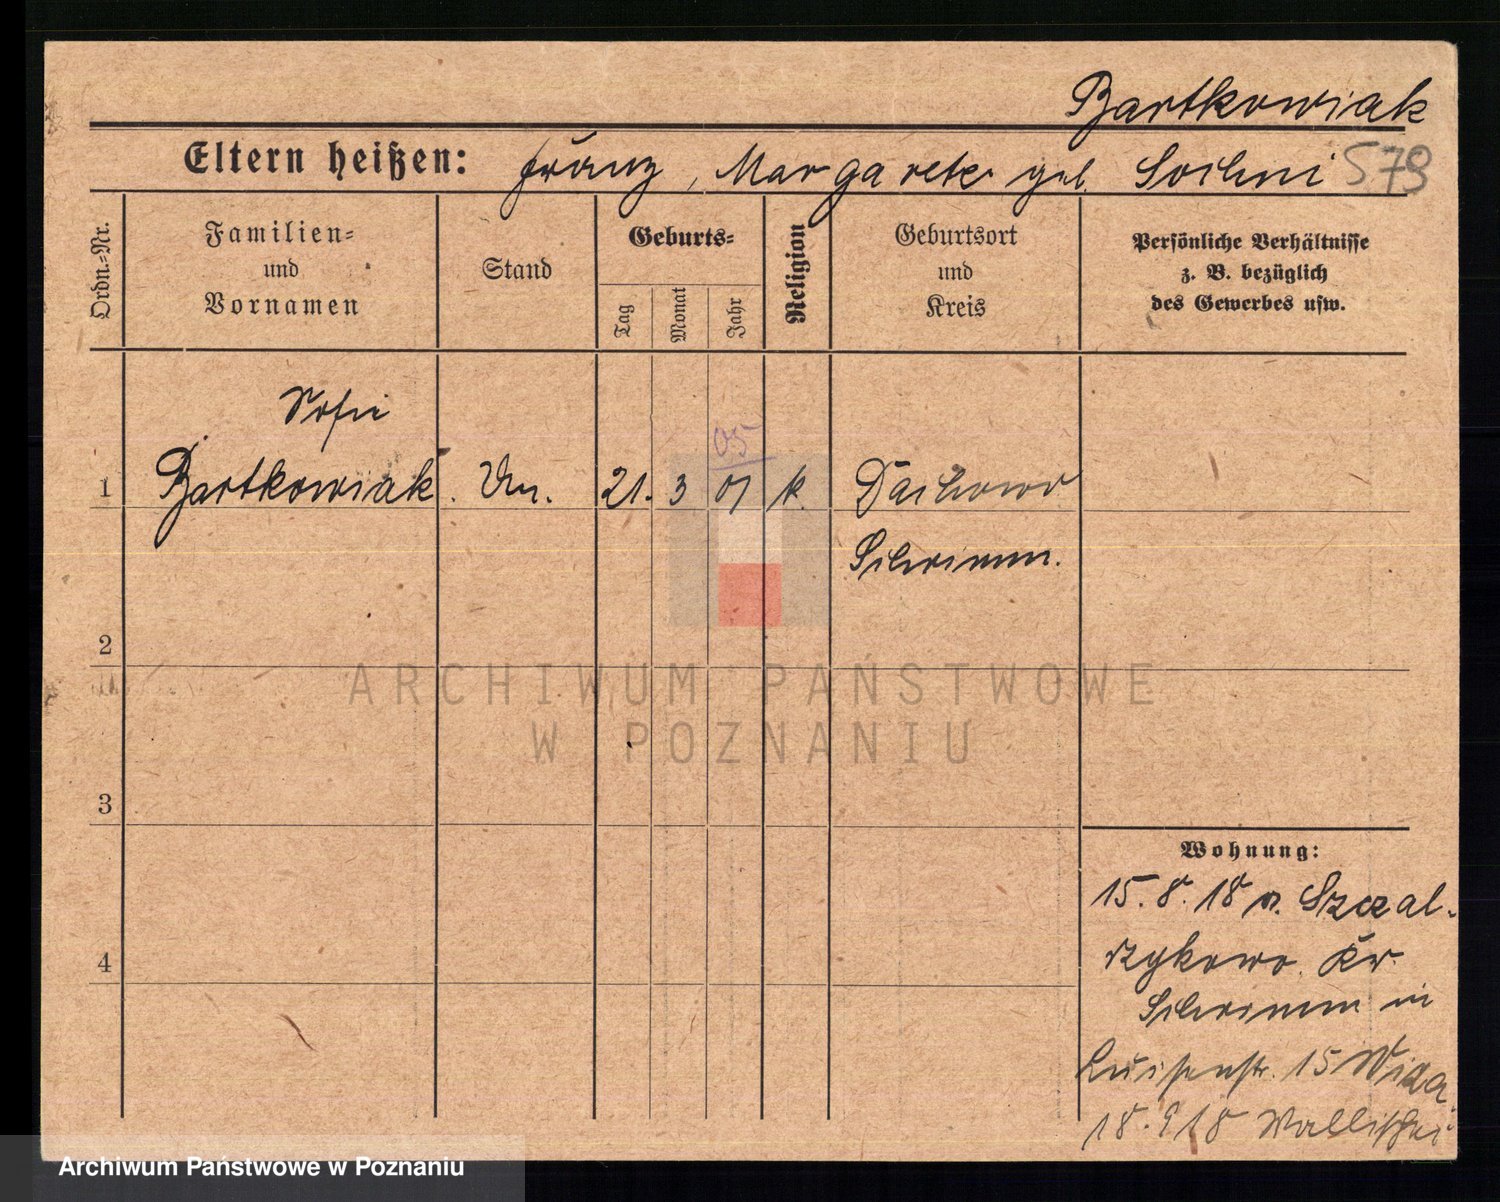 Bartkowiak
Eltern heißen: Franz, Margarete geb. Sochni S 79
Ordn.-Nr.
Familien- und Vornamen
Stand
Geburts-
Tag
Monat
Jahr
Religion
Geburtsort und Kreis
Persönliche Verhältnisse
z. B. bezüglich
des Gewerbes usw.
Sofie
05
1 Bartkowiak. 21. 3 01 k. Dachowo
Schrimm.
2
3
4
Wohnung:
15. 8. 18 v. Szczal-
rzykowo. Kr.
Schrimm in
Luisenstr. 15 Wida
18. 9 18 Wallischei
ARCHIWUM PAŃSTWOWE
W POZNANIU
Archiwum Państwowe w Poznaniu